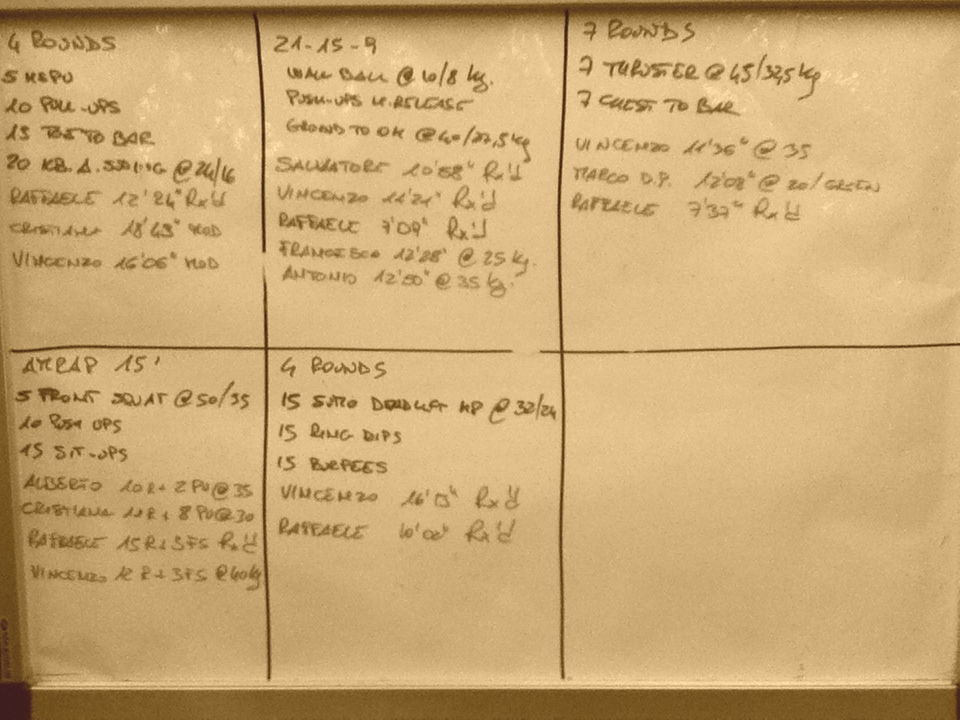 4 ROUNDS
5 HSPU
10 PULL-UPS
15 TOE TO BAR
20 KB. A. SWING @24/16
RAFFAELE 12'24" Rx'd
CRISTIANA 18'43" MOD
VINCENZO 16'06" MOD
21-15-9
WALL BALL @10/8 kg.
PUSH-UPS H.RELEASE
GROUND TO OH @40/27,5kg
SALVATORE 10'58" Rx'd
VINCENZO 11'21" Rx'd
RAFFAELE 7'09" Rx'd
FRANCESCO 12'28" @ 25 kg.
ANTONIO 12'50" @ 35 kg.
7 ROUNDS
7 THRUSTER @ 45/32,5kg
7 CHEST TO BAR
VINCENZO 11'36" @ 35
MARCO D.P. 12'08" @ 20/GREEN
RAFFAELE 7'37" Rx'd
AMRAP 15'
5 FRONT SQUAT @50/35
10 PUSH UPS
15 SIT-UPS
ALBERTO 10R+ 2 PU@35
CRISTIANA 11R+ 8 PU@30
RAFFAELE 15R+3FS Rx'd
VINCENZO 12 R+ 3FS @40kg
4 ROUNDS
15 SUMO DEADLIFT HP @32/24
15 RING DIPS
15 BURPEES
VINCENZO Rx'd
RAFFAELE 10'02" Rx'd